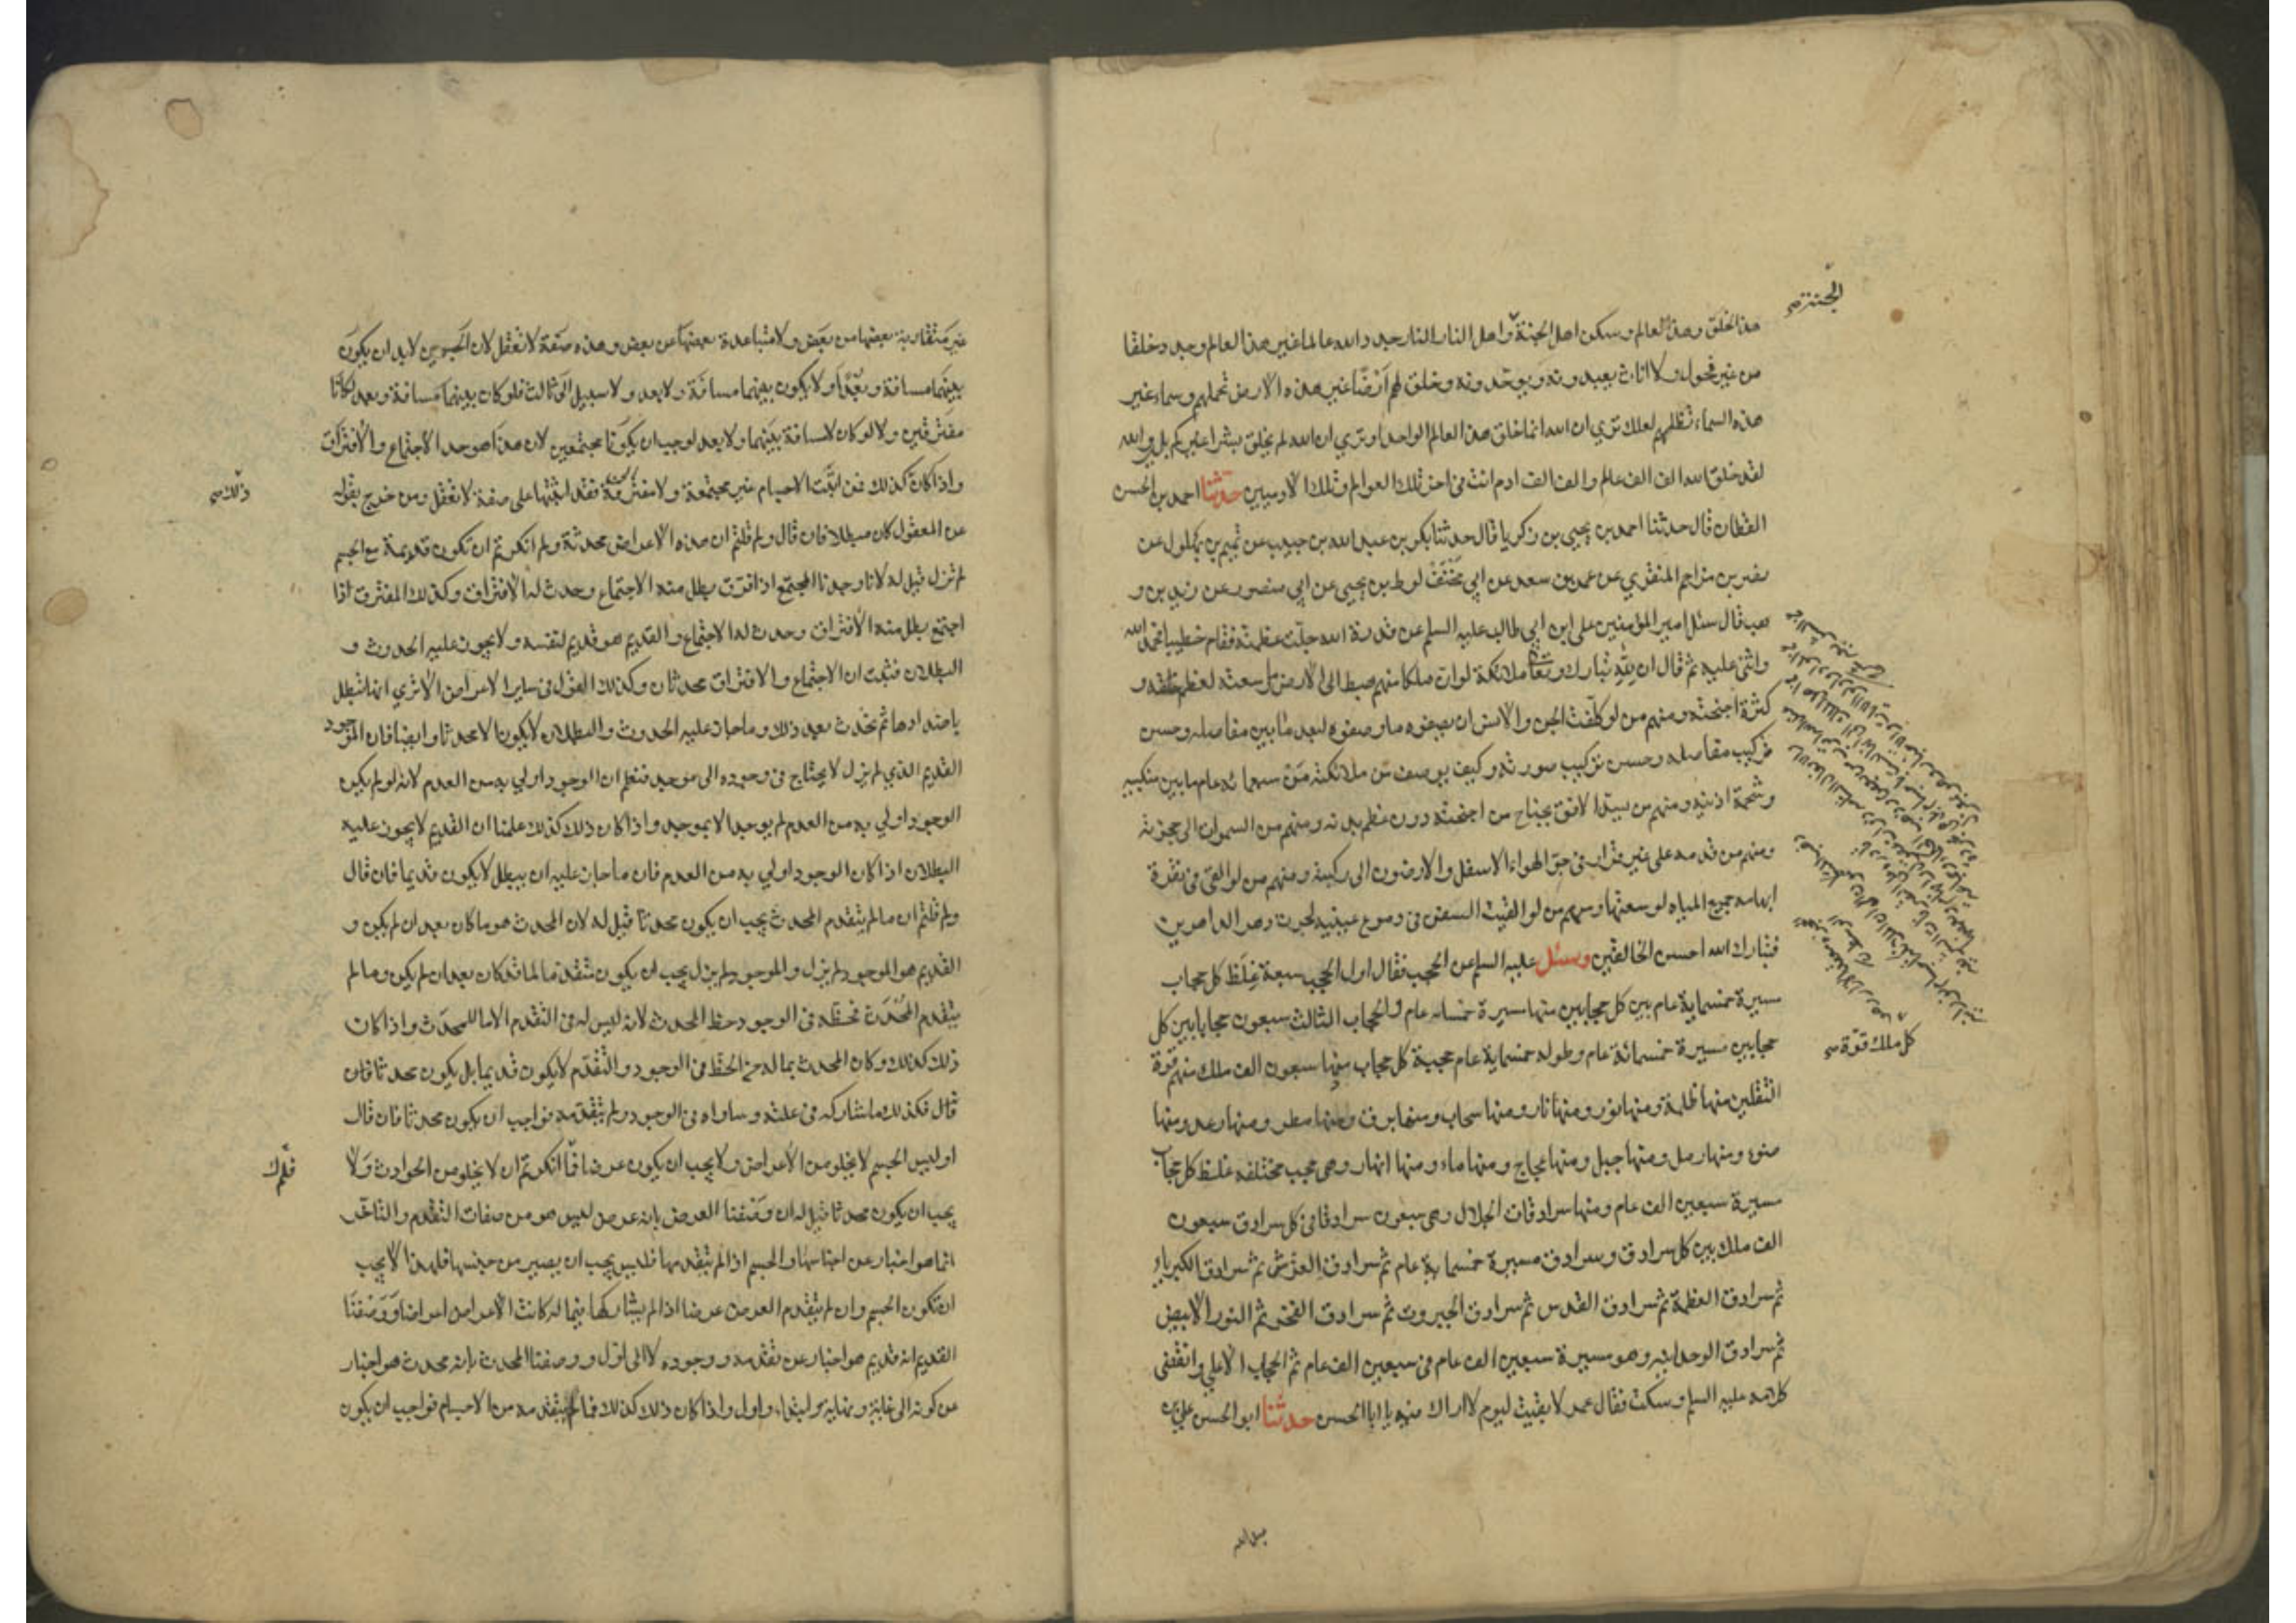 الجنة صح
هذا الخلق وهذا العالم وسكن اهل الجنة واهل النار النار جدد الله عالما غير هذا العالم وجدد خلقا
من غير فحول ولا اناث يعبدونه ويوحدونه وخلق لهم ارضا غير هذه الارض تحملهم وسماء غير
هذه السماء تظلهم لعلك ترى ان الله انما خلق هذا العالم الواحد او ترى ان الله لم يخلق بشرا غيركم بلى والله
لقد خلق الله الف الف عالم والف الف ادم انت فى اخر تلك العوالم وتلك الادميين حدثنا احمد بن الحسن
القطان قال حدثنا احمد بن يحيى بن زكريا قال حدثنا بكر بن عبد الله بن حبيب عن تميم بن بهلول عن
نصر بن مزاحم المنقري عن عمر بن سعد عن ابي مخنف لوط بن يحيى عن ابي منصور عن زيد بن و
هب قال سئل امير المؤمنين على ابن ابي طالب عليه السلم عن قدرة الله جلت عظمته فقام خطيبا فحمد الله
واثنى عليه ثم قال ان لله تبارك وتعا ملائكة لو ان ملكا منهم هبط الى الارض ما وسعته لعظم خلقه و
كثرة اجنحته ومنهم من لو كلفت الجن والانس ان يصفوه ما وصفوه لبعد ما بين مفاصله وحسن
تركيب مفاصله وحسن تركيب صورته وكيف يوصف من ملائكته من سبعمائة عام ما بين منكبيه
وشحمة اذنيه ومنهم من يسد الافق بجناح من اجنحته دون عظم يديه ومنهم من السموات الى حجزته
ومنهم من قدمه على غير قرار فى جو الهواء الاسفل والارضون الى ركبته ومنهم من لو القى فى نقرة
ابهامه جميع المياه لوسعتها ومنهم من لو القيت السفن فى دموع عينيه لجرت دهر الداهرين
فتبارك الله احسن الخالقين وسئل عليه السلم عن الحجب فقال اول الحجب سبعة غلظ كل حجاب
مسيرة خمسماية عام بين كل حجابين منها مسيرة خمسمائه عام والحجاب الثالث سبعون حجابا بين كل
حجابين مسيرة خمسمائة عام وطوله خمسماية عام حجبة كل حجاب منها سبعون الف ملك منهم قوة
كل ملك قوة صح
الثقلين منها ظلمة ومنها نور ومنها نار ومنها سحاب ومنها برق ومنها مطر ومنها رعد ومنها
ضوء ومنها رمل ومنها جبل ومنها عجاج ومنها ماء ومنها انهار وهى حجب مختلفه غلظ كل حجاب
مسيرة سبعين الف عام ومنها سرادقات الجلال وهى سبعون سرادقا فى كل سرادق سبعون
الف ملك بين كل سرادق وسرادق مسيرة خمسماية عام ثم سرادق العرش ثم سرادق الكبرياء
ثم سرادق العظمة ثم سرادق القدس ثم سرادق الجبروت ثم سرادق الفخر ثم النور الابيض
ثم سرادق الوحدانيه وهو مسيرة سبعين الف عام فى سبعين الف عام ثم الحجاب الاعلى وانقضى
كلامه عليه السلم وسكت فقال عمر لا بقيت ليوم لا اراك فيه يا ابا الحسن حدثنا ابو الحسن على بن
غير متقاربة بعضها من بعض ولا متباعدة بعضها من بعض وهذه صفة لا تعقل لان الجسمين لا بد ان يكون
بينهما مسافة وبعدا ولا يكون بينهما مسافة ولا بعد ولا سبيل الى ثالث فلو كان بينهما مسافة وبعد لكانا
مفترقين ولا لو كان لا مسافة بينهما ولا بعد لوجب ان يكونا مجتمعين لان هذا هو حد الاجتماع والافتراق
واذا كان كذلك فمن اثبت الاجسام غير مجتمعة ولا مفترقة فقد اثبتها على صفة لا تعقل ومن خرج بقوله
ذلك صح
عن المعقول كان مبطلا فان قال ولم قلتم ان هذه الاعراض محدثة ولم انكرتم ان تكون قديمة مع الجسم
لم تزل قيل له لانا وجدنا المجتمع اذا فرق بطل منه الاجتماع وحدث له الافتراق وكذلك المفترق اذا
اجتمع بطل منه الافتراق وحدث له الاجتماع والقديم هو قديم لنفسه ولا يجوز عليه الحدوث و
البطلان فثبت ان الاجتماع والافتراق محدثان وكذلك القول فى ساير الاعراض الا ترى انها تبطل
باضدادها ثم تحدث بعد ذلك وما جاز عليه الحدوث والبطلان لا يكون الا محدثا وايضا فان الموجود
القديم الذي لم يزل لا يحتاج فى وجوده الى موجد فنعلم ان الوجود اولي به من العدم لانه لو لم يكن
الوجود اولي به من العدم لم يوجد الا بموجد واذا كان ذلك كذلك علمنا ان القديم لا يجوز عليه
البطلان اذا كان الوجود اولي به من العدم فان ما جاز عليه ان يبطل لا يكون قديما فان قال
ولم قلتم ان ما لم يتقدم المحدث يجب ان يكون محدثا قيل له لان المحدث هو ما كان بعد ان لم يكن و
القديم هو الموجود لم يزل والموجود لم يزل يجب ان يكون متقدما لما قد كان بعد ان لم يكن وما لم
يتقدم المحدث فحظه فى الوجود حظ المحدث لانه ليس له فى التقدم الا ما للمحدث واذا كان
ذلك كذلك وكان المحدث بما له من الحظ فى الوجود والتقدم لا يكون قديما بل يكون محدثا فان
قال فكذلك ما شاركه فى علته وساواه فى الوجود ولم يتقدمه فواجب ان يكون محدثا فان قال
اوليس الجسم لا يخلو من الاعراض ولا يجب ان يكون عرضا فما انكرتم ان لا يخلو من الحوادث ولا
يجب ان يكون محدثا قيل له ان وصفنا العرض بانه عرض ليس هو من صفات التقدم والتاخر
انما هو اخبار عن اجناسها والجسم اذا لم يتقدمها فليس يجب ان يصير من جنسها فلهذا لا يجب
ان تكون الجسم وان لم يتقدم العرض عرضا اذا لم يشاركها فيما له كانت الاعراض اعراضا ووصفنا
القديم انه قديم هو اخبار عن تقدمه ووجوده لا الى اول ووصفنا المحدث بانه محدث هو اخبار
عن كونه الى غاية ونهاية وابتداء واول واذا كان ذلك كذلك فما لم يتقدمه من الاجسام فواجب ان يكون